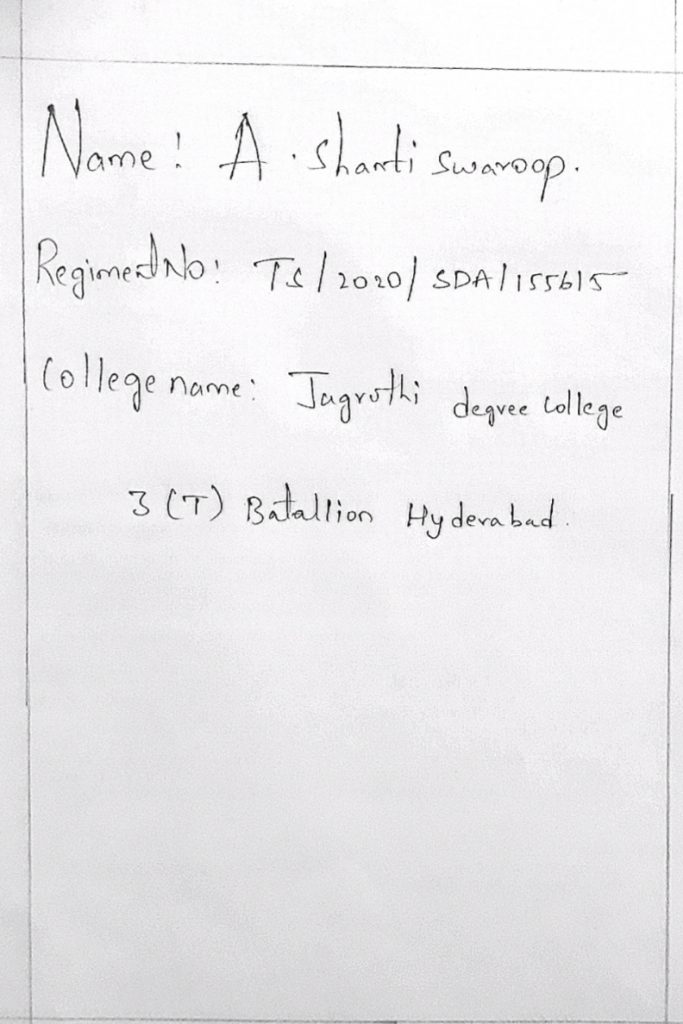 Name: A. Shanti Swaroop.
Regiment No: TS/2020/SDA/155615
College name: Jagruthi degree College
3 (T) Batallion Hyderabad.